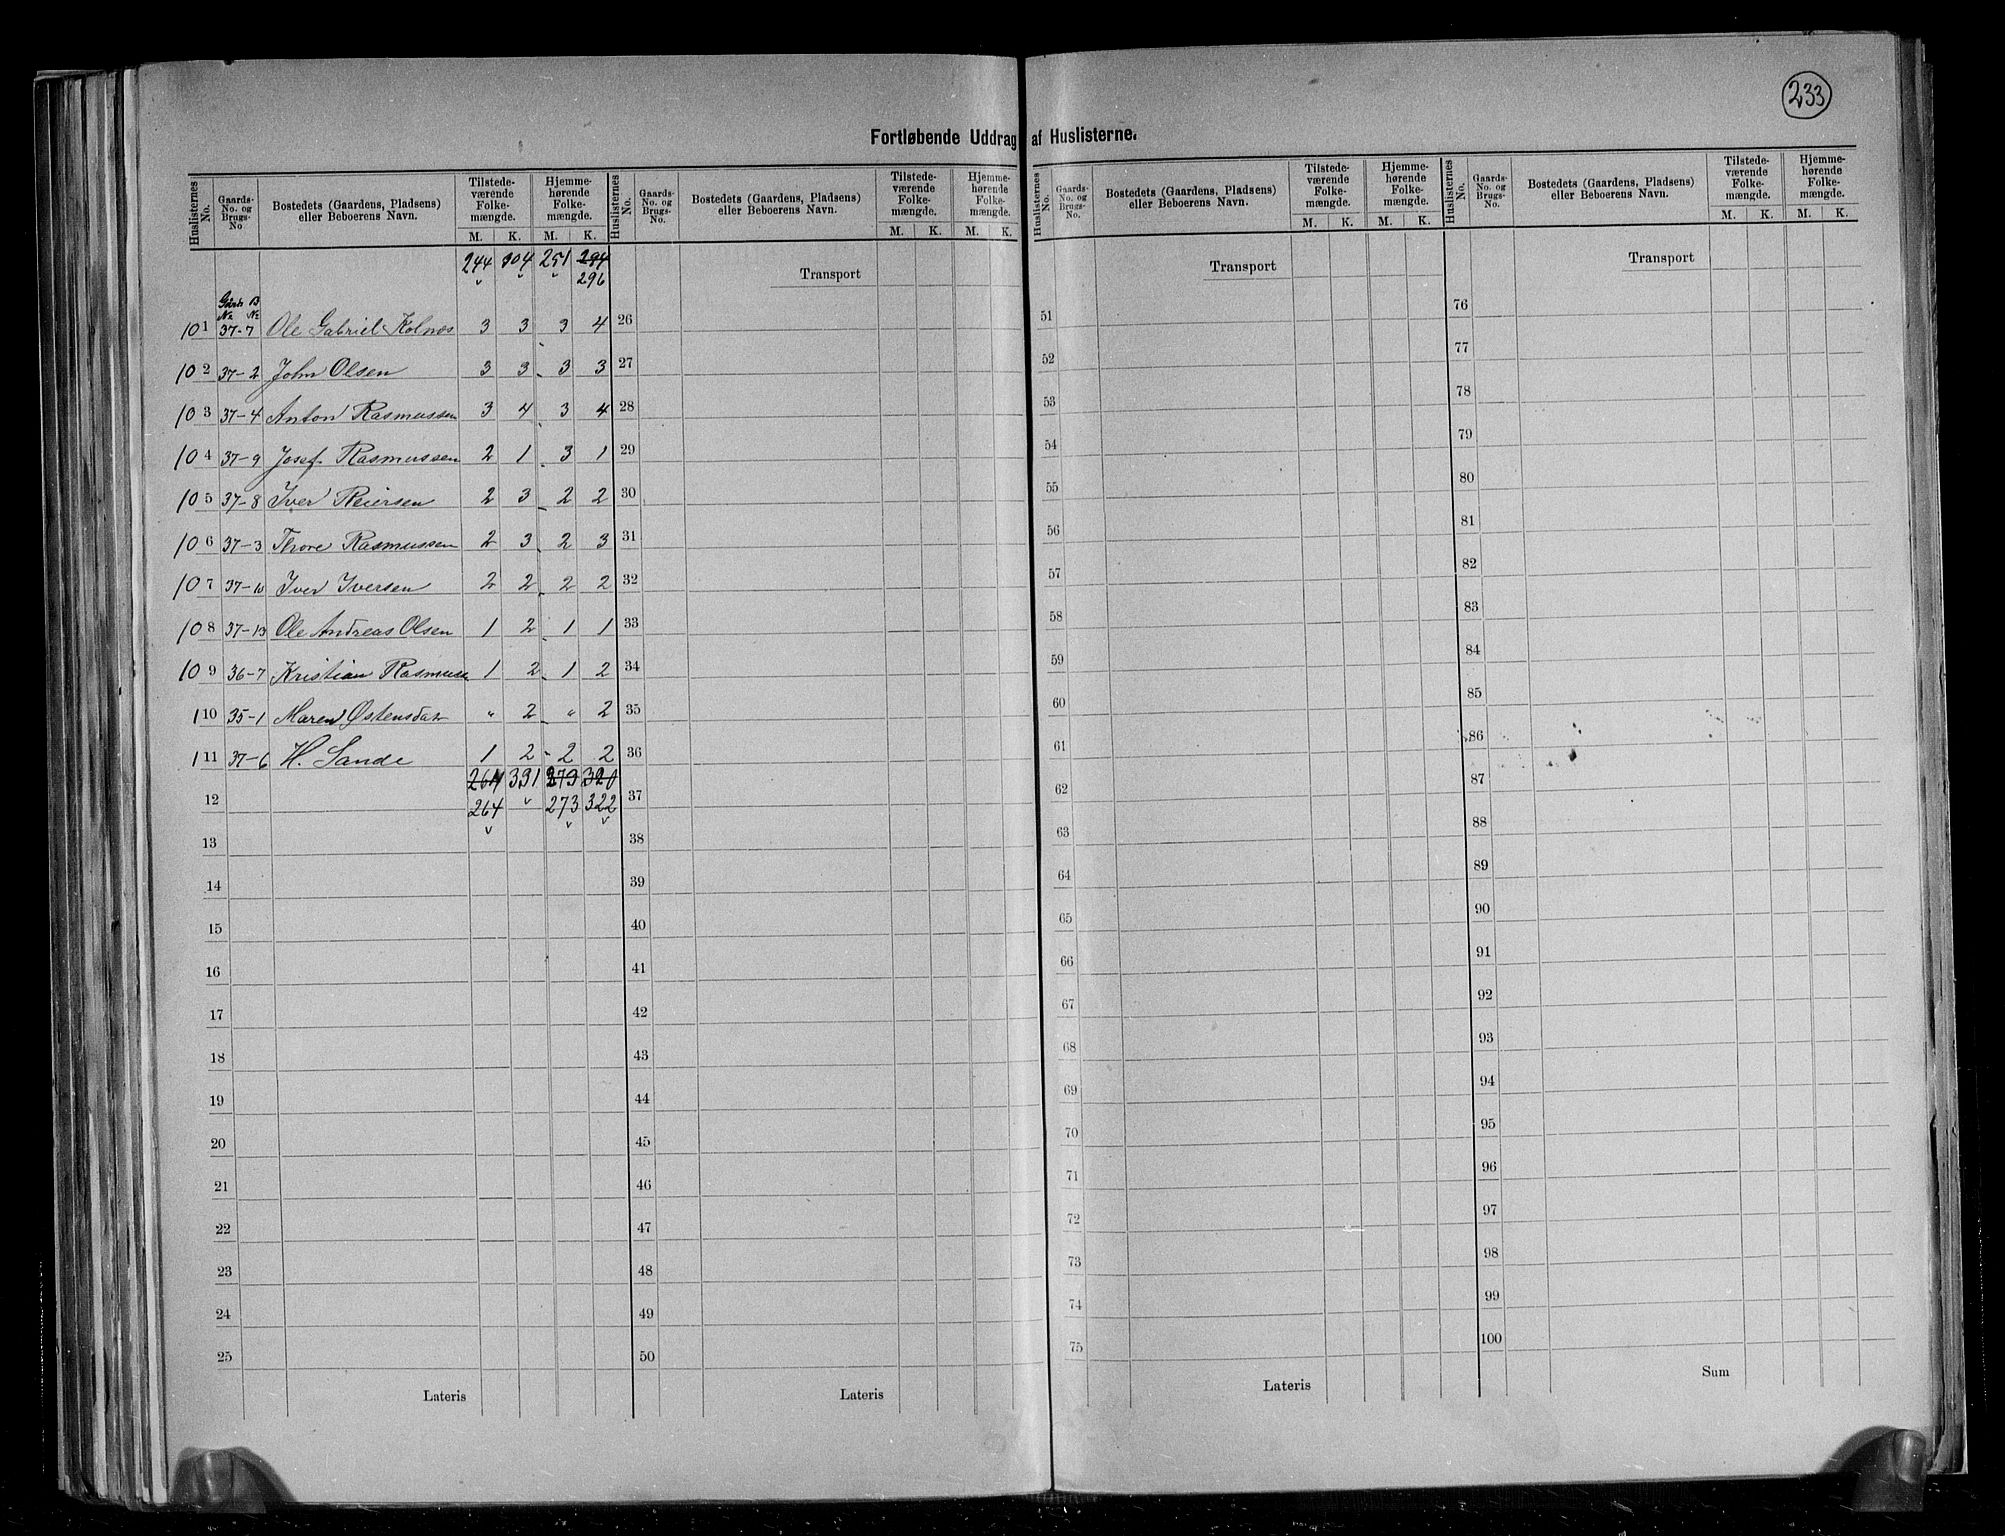 233
Fortløbende Uddrag af Huslisterne.
Huslisternes No. Gaards-No. og Brugs-No Bostedets (Gaardens, Pladsens) eller Beboerens Navn. Tilstede-værende Folke-mængde. M. K. Hjemme-hørende Folke-mængde. M. K.
Huslisternes No. Gaards-No. og Brugs-No. Bostedets (Gaardens, Pladsens) eller Beboerens Navn. Tilstede-værende Folke-mængde. M. K. Hjemme-hørende Folke-mængde. M. K.
Huslisternes No. Gaards-No. og Brugs-No. Bostedets (Gaardens, Pladsens) eller Beboerens Navn. Tilstede-værende Folke-mængde. M. K. Hjemme-hørende Folke-mængde. M. K.
Huslisternes No. Gaards-No. og Brugs-No. Bostedets (Gaardens, Pladsens) eller Beboerens Navn. Tilstede-værende Folke-mængde. M. K. Hjemme-hørende Folke-mængde. M. K.
244 304 251
296
Gårds B
No. No.
101 37-7 Ole Gabriel Kolnes 3 3 3 4
102 37-2 John Olsen 3 3 3 3
103 37-4 Anton Rasmussen 3 4 3 4
104 37-9 Josef Rasmussen 2 1 3 1
105 37-8 Iver Reiersen 2 3 2 2
106 37-3 Thore Rasmussen 2 3 2 3
107 37-10 Iver Iversen 2 2 2 2
108 37-13 Ole Andreas Olsen 1 2 1 1
109 36-7 Kristian Rasmuss 1 2 1 2
110 35-1 Maren Østensdat " 2 " 2
111 37-6 H. Sande 1 2 2 2
331 320
12 264 273 322
13
14
15
16
17
18
19
20
21
22
23
24
25
Lateris
Transport
26
27
28
29
30
31
32
33
34
35
36
37
38
39
40
41
42
43
44
45
46
47
48
49
50
Lateris
Transport
51
52
53
54
55
56
57
58
59
60
61
62
63
64
65
66
67
68
69
70
71
72
73
74
75
Lateris
Transport
76
77
78
79
80
81
82
83
84
85
86
87
88
89
90
91
92
93
94
95
96
97
98
99
100
Sum